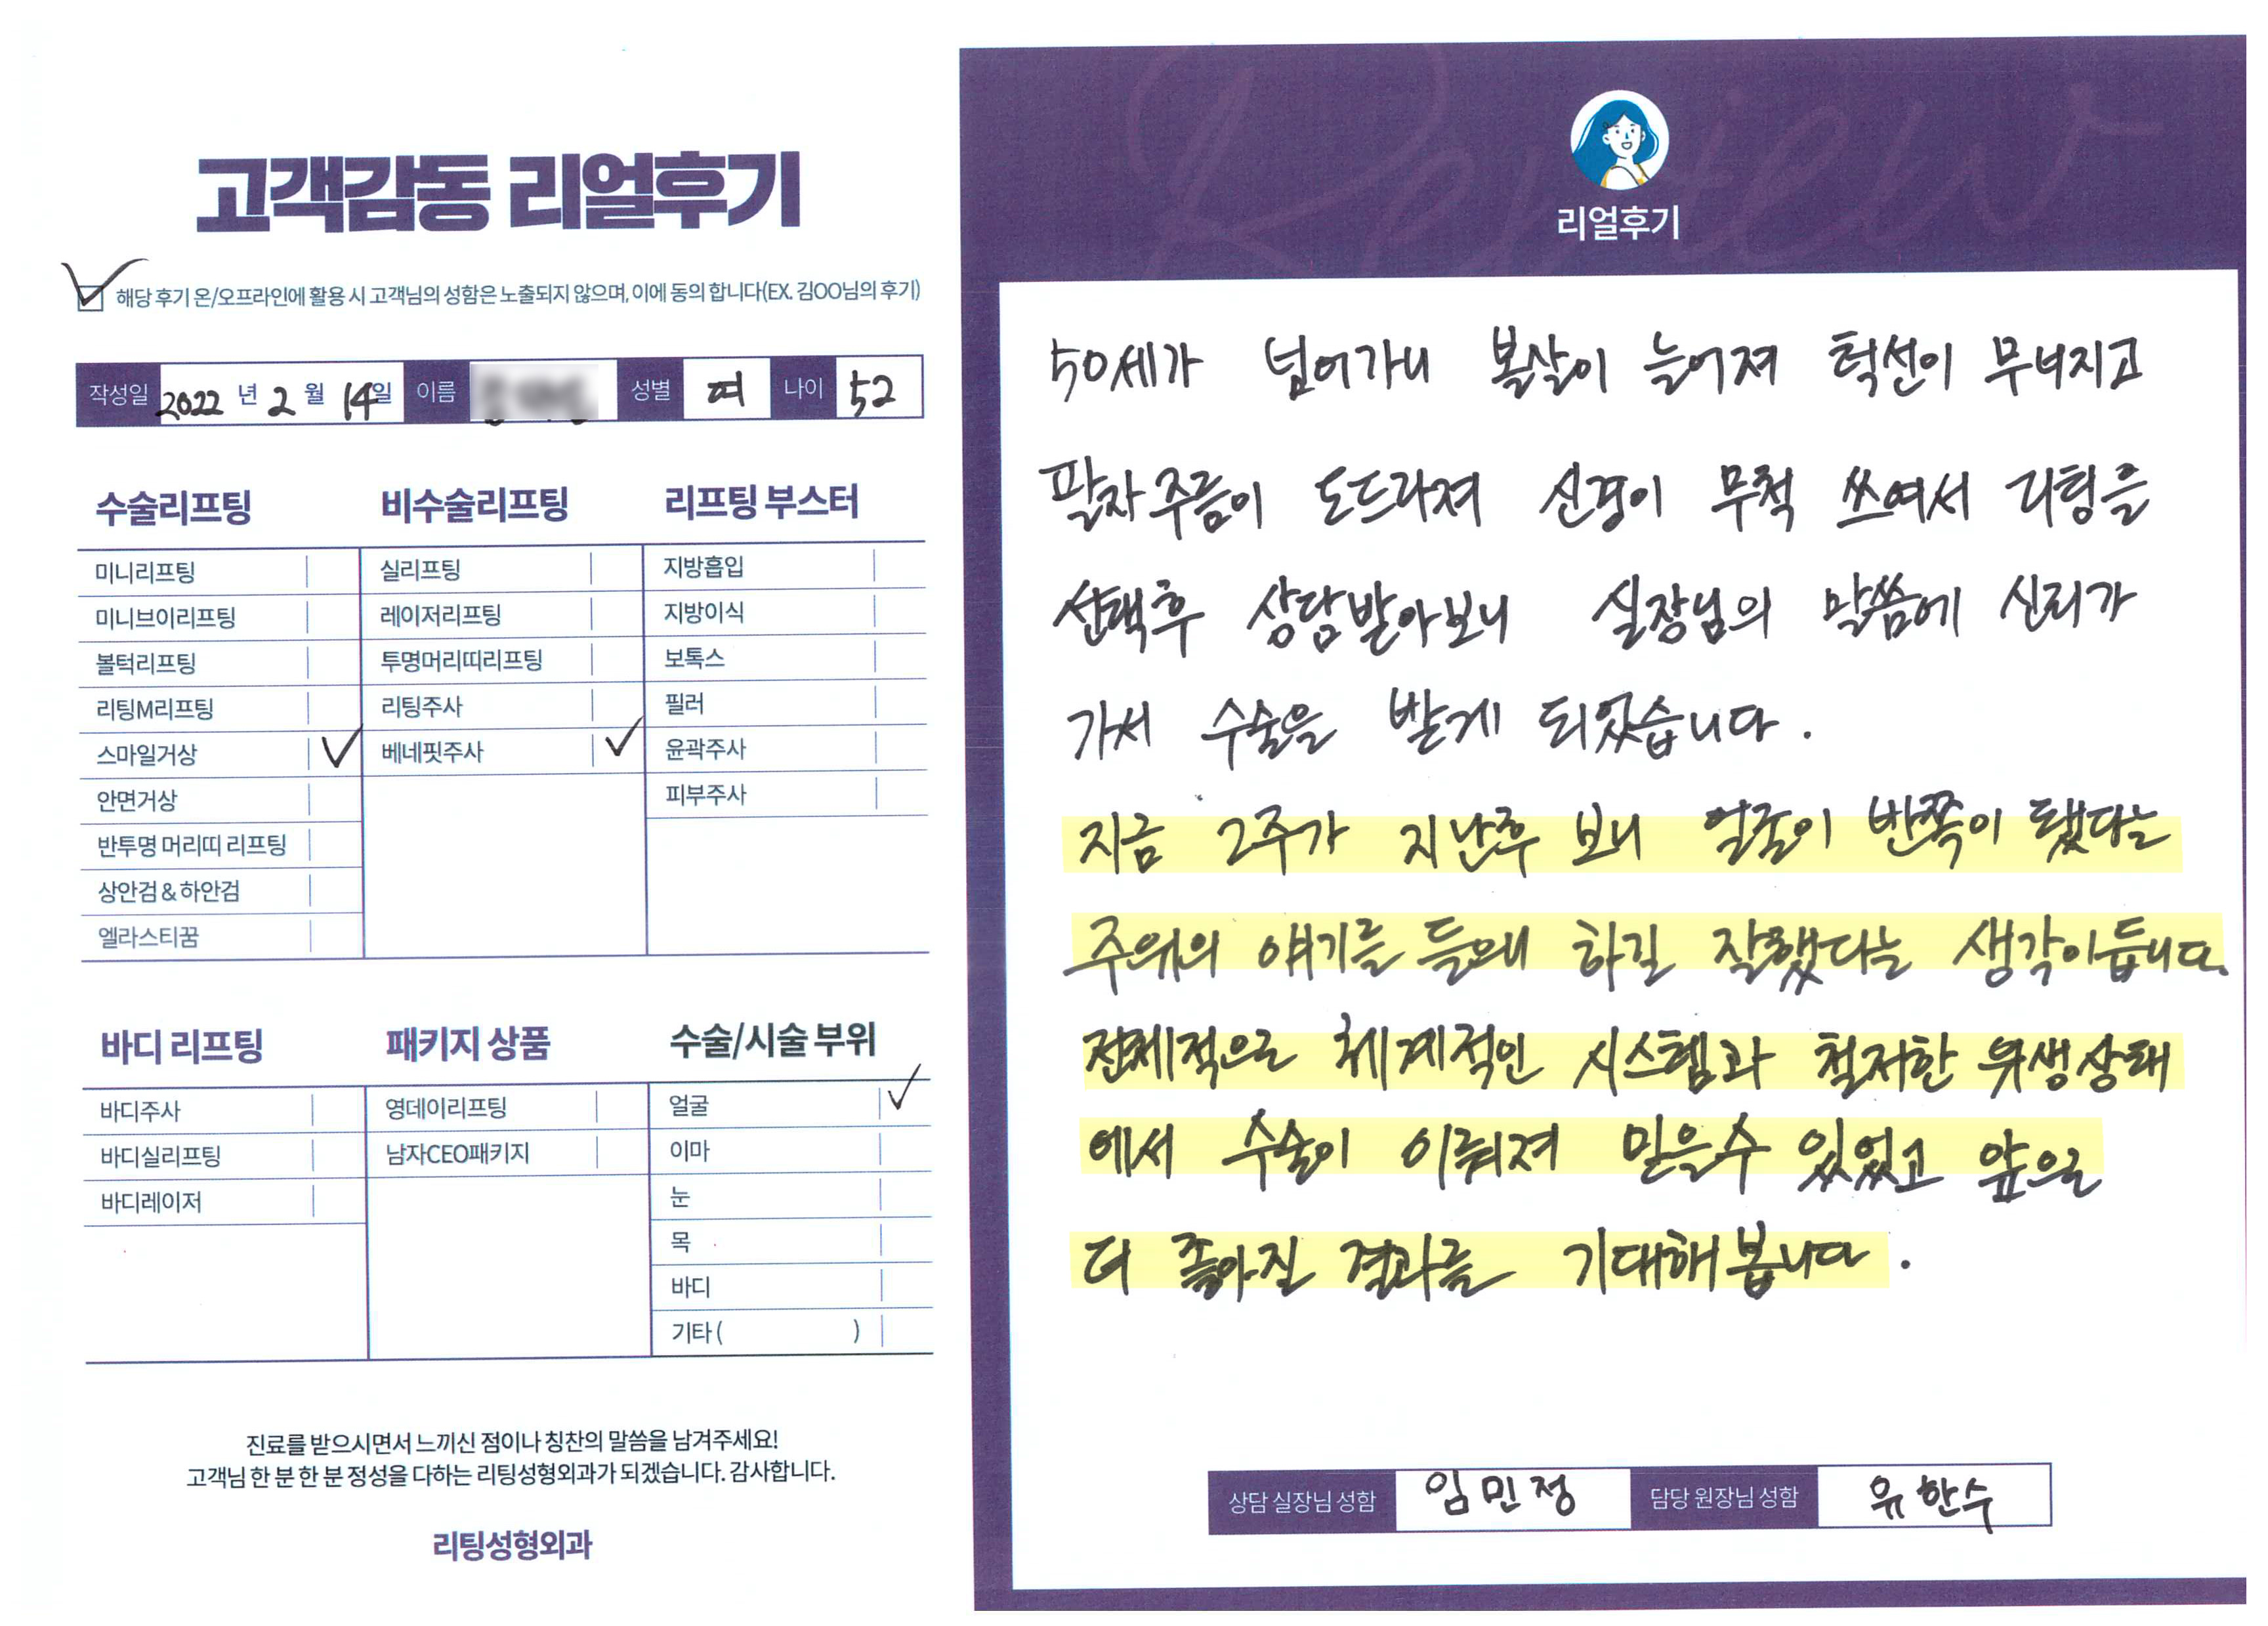 고객감동 리얼후기
해당 후기 온/오프라인에 활용 시 고객님의 성함은 노출되지 않으며, 이에 동의 합니다(EX. 김OO님의 후기)
작성일 2022 년 2 월 14일 이름 성별 여 나이 52
수술리프팅
미니리프팅
미니브이리프팅
볼턱리프팅
리팅M리프팅
스마일거상
안면거상
반투명 머리띠 리프팅
상안검 & 하안검
엘라스티꿈
비수술리프팅
실리프팅
레이저리프팅
투명머리띠리프팅
리팅주사
베네핏주사
리프팅 부스터
지방흡입
지방이식
보톡스
필러
윤곽주사
피부주사
바디 리프팅
바디주사
바디실리프팅
바디레이저
패키지 상품
영데이리프팅
남자CEO패키지
수술/시술 부위
얼굴
이마
눈
목
바디
기타 ( )
진료를 받으시면서 느끼신 점이나 칭찬의 말씀을 남겨주세요!
고객님 한 분 한 분 정성을 다하는 리팅성형외과가 되겠습니다. 감사합니다.
리팅성형외과
Review
리얼후기
50세가 넘어가니 볼살이 늘어져 턱선이 무너지고
팔자주름이 도드라져 신경이 무척 쓰여서 리팅을
선택후 상담받아보니 실장님의 말씀에 신뢰가
가서 수술을 받게 되었습니다.
지금 2주가 지난후 보니 얼굴이 반쪽이 됐다는
주위의 얘기를 하길 잘했다는 생각이듭니다.
전체적으로 체계적인 시스템과 철저한 위생상태
에서 수술이 이뤄져 믿을수 있었고 앞으로
더 좋아질 결과를 기대해봅니다.
상담 실장님 성함 임민정 담당 원장님 성함 유한수